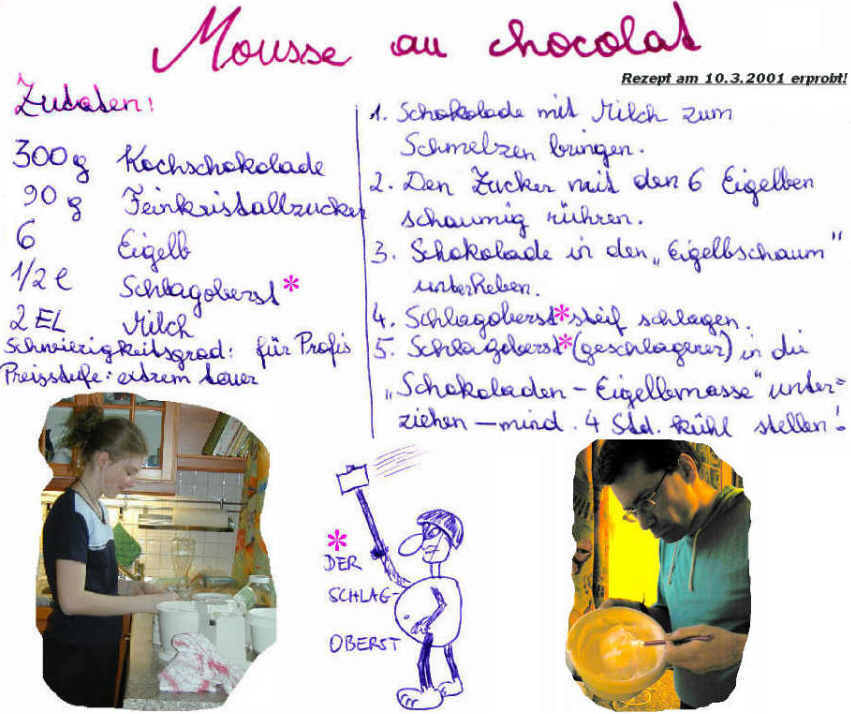 Mousse au chocolat
Rezept am 10.3.2001 erprobt!
Zutaten:
300g Kochschokolade
90g Feinkristallzucker
6 Eigelb
1/2 l Schlagoberst*
2 EL Milch
Schwierigkeitsgrad: für Profis
Preisstufe: extrem teuer
1. Schokolade mit Milch zum
Schmelzen bringen.
2. Den Zucker mit den 6 Eigelben
schaumig rühren.
3. Schokolade in den „Eigelbschaum"
unterheben.
4. Schlagoberst* steif schlagen.
5. Schlagoberst* (geschlagener) in die
„Schokoladen-Eigelbmasse" unter=
ziehen – mind. 4 Std. kühl stellen!
*
DER
SCHLAG-
OBERST